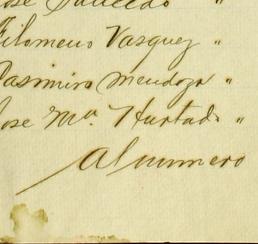 José Saucedo "
Filomeno Vasquez "
Casimiro Mendoza "
José Ma. Hurtado "
Al numero